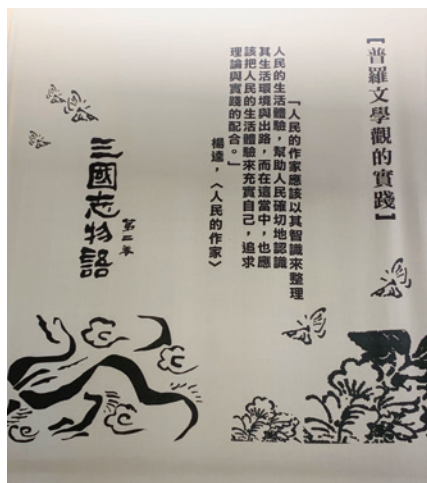 【普羅文學觀的實踐】
「人民的作家應該以其智識來整理
人民的生活體驗，幫助人民確切地認識
其生活環境與出路，而在這當中，也應
該把人民的生活體驗來充實自己，追求
理論與實踐的配合。」
楊逵，〈人民的作家〉
三國志物語
第二卷